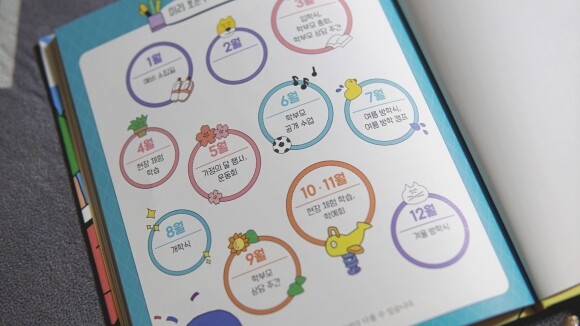 미리
1월
예비 소집일
2월
3월
입학식,
학부모 총회,
학부모 상담 주간
4월
현장 체험
학습
5월
가정의 달 행사,
운동회
6월
학부모
공개 수업
7월
여름 방학식,
여름 방학 캠프
8월
개학식
9월
학부모
상담 주간
10·11월
현장 체험 학습,
학예회
12월
겨울 방학식
다를 수 있습니다